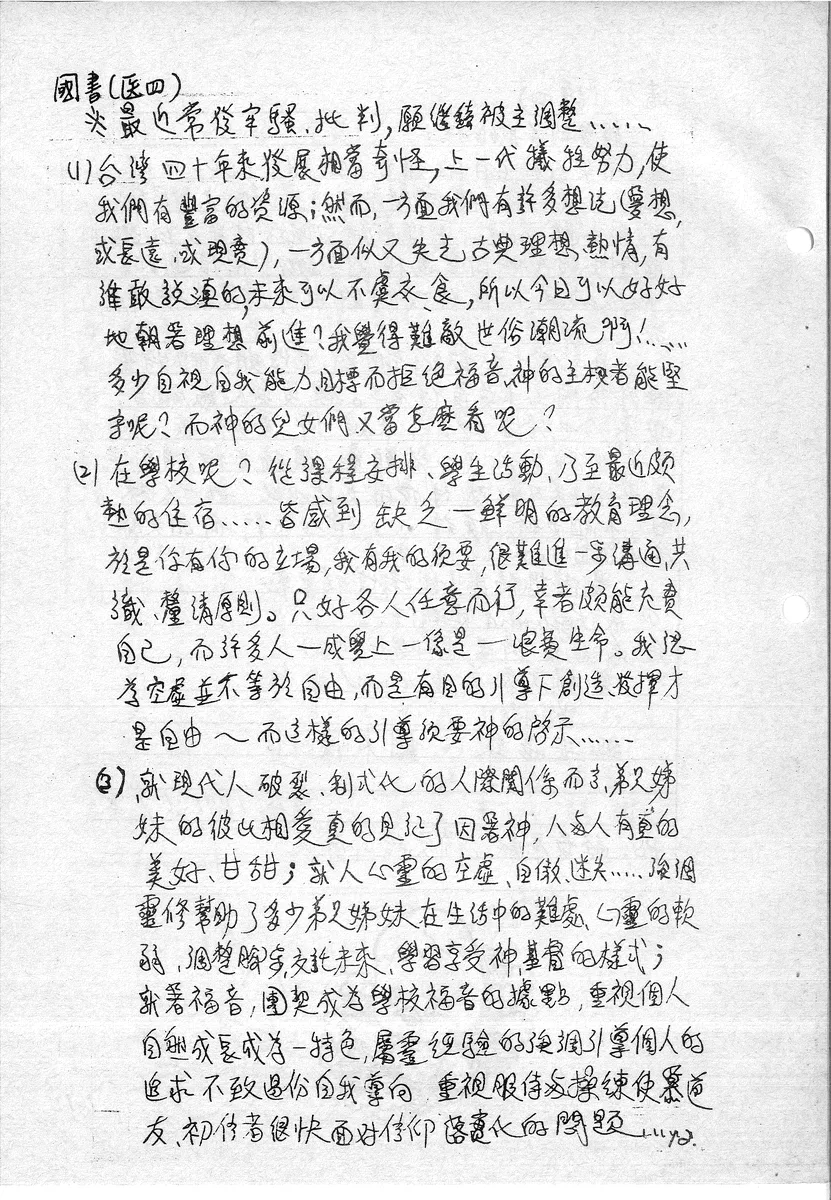 國書(医四)
最近常發牢騷、批判,願繼續被主調整......
(1)台灣四十年來發展相當奇怪,上一代犧牲努力,使
我們有豐富的資源;然而,一方面我們有許多想法(愛想,
或長遠、或現實),一方面似又失去古典理想、熱情,有
誰敢說潇的,未來可以不虞衣、食,所以今日可以好好
地朝著理想前進?我覺得難敵世俗潮流啊!......
多少自視自我能力、目標而拒絕福音、神的主权者能堅
守呢?而神的兒女們又當怎麼看呢?
(2)在學校呢?從課程安排、學生活動、乃至最近頗
熱的住宿.....皆感到缺乏一鮮明的教育理念,
於是你有你的立場,我有我的須要,很難進一步溝通、共
識、釐清原則。只好各人任意而行,幸者頗能充實
自己,而許多人—感覺上—像是—浪費生命。我認
為空虛並不等於自由,而是有目的引導下創造、發揮才
是自由~而這樣的引導須要神的啓示......
(3)就現代人破裂、制式化的人際關係而言,弟兄姊
妹的彼此相愛真的見証了因著神,人與人有真的
美好、甘甜;就人心靈的空虛、自傲、迷失.....強調
靈修幫助了多少弟兄姊妹在生活中的難處、心靈的軟
弱、調整腳步,交託未來、學習享受神,基督的樣式;
就著福音,團契成為學校福音的據點,重視個人
自塑成長成為一特色,屬靈經驗的強調引導個人的
追求不致過份自我導向 重視服侍與操練使慕道
友、初信者很快面对信仰落實化的問題